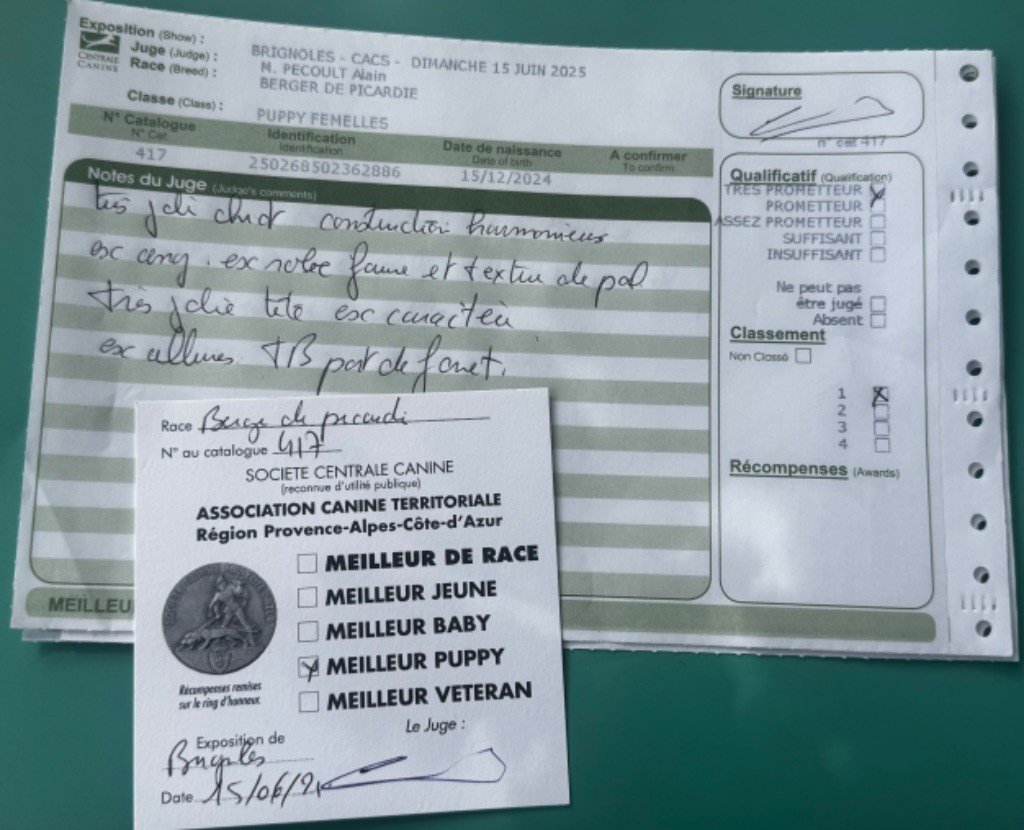 Exposition (Show) : BRIGNOLES - CACS - DIMANCHE 15 JUIN 2025
CENTRALE CANINE
Juge (Judge) : M. PECOULT Alain
Race (Breed) : BERGER DE PICARDIE
Classe (Class) : PUPPY FEMELLES
N° Catalogue Identification Date de naissance A confirmer
N° Cat. Identification Date of birth To confirm
417 250268502362886 15/12/2024
Notes du Juge (Judge's comments)
très joli chiot construction harmonieuse
exc et texture de poil
très jolie tête exc caractère
ex allures TB port de fouet.
MEILLEU
Signature
n° cat 417
Qualificatif (Qualification)
TRES PROMETTEUR
PROMETTEUR
ASSEZ PROMETTEUR
SUFFISANT
INSUFFISANT
Ne peut pas
être jugé
Absent
Classement
Non Classé
1
2
3
4
Récompenses (Awards)
Race Berger de picardi
N° au catalogue 417
SOCIETE CENTRALE CANINE
(reconnue d'utilité publique)
ASSOCIATION CANINE TERRITORIALE
Région Provence-Alpes-Côte-d'Azur
MEILLEUR DE RACE
MEILLEUR JEUNE
MEILLEUR BABY
MEILLEUR PUPPY
MEILLEUR VETERAN
Récompenses remises
sur le ring d'honneur.
Le Juge :
Exposition de
Brignoles
Date 15/06/2